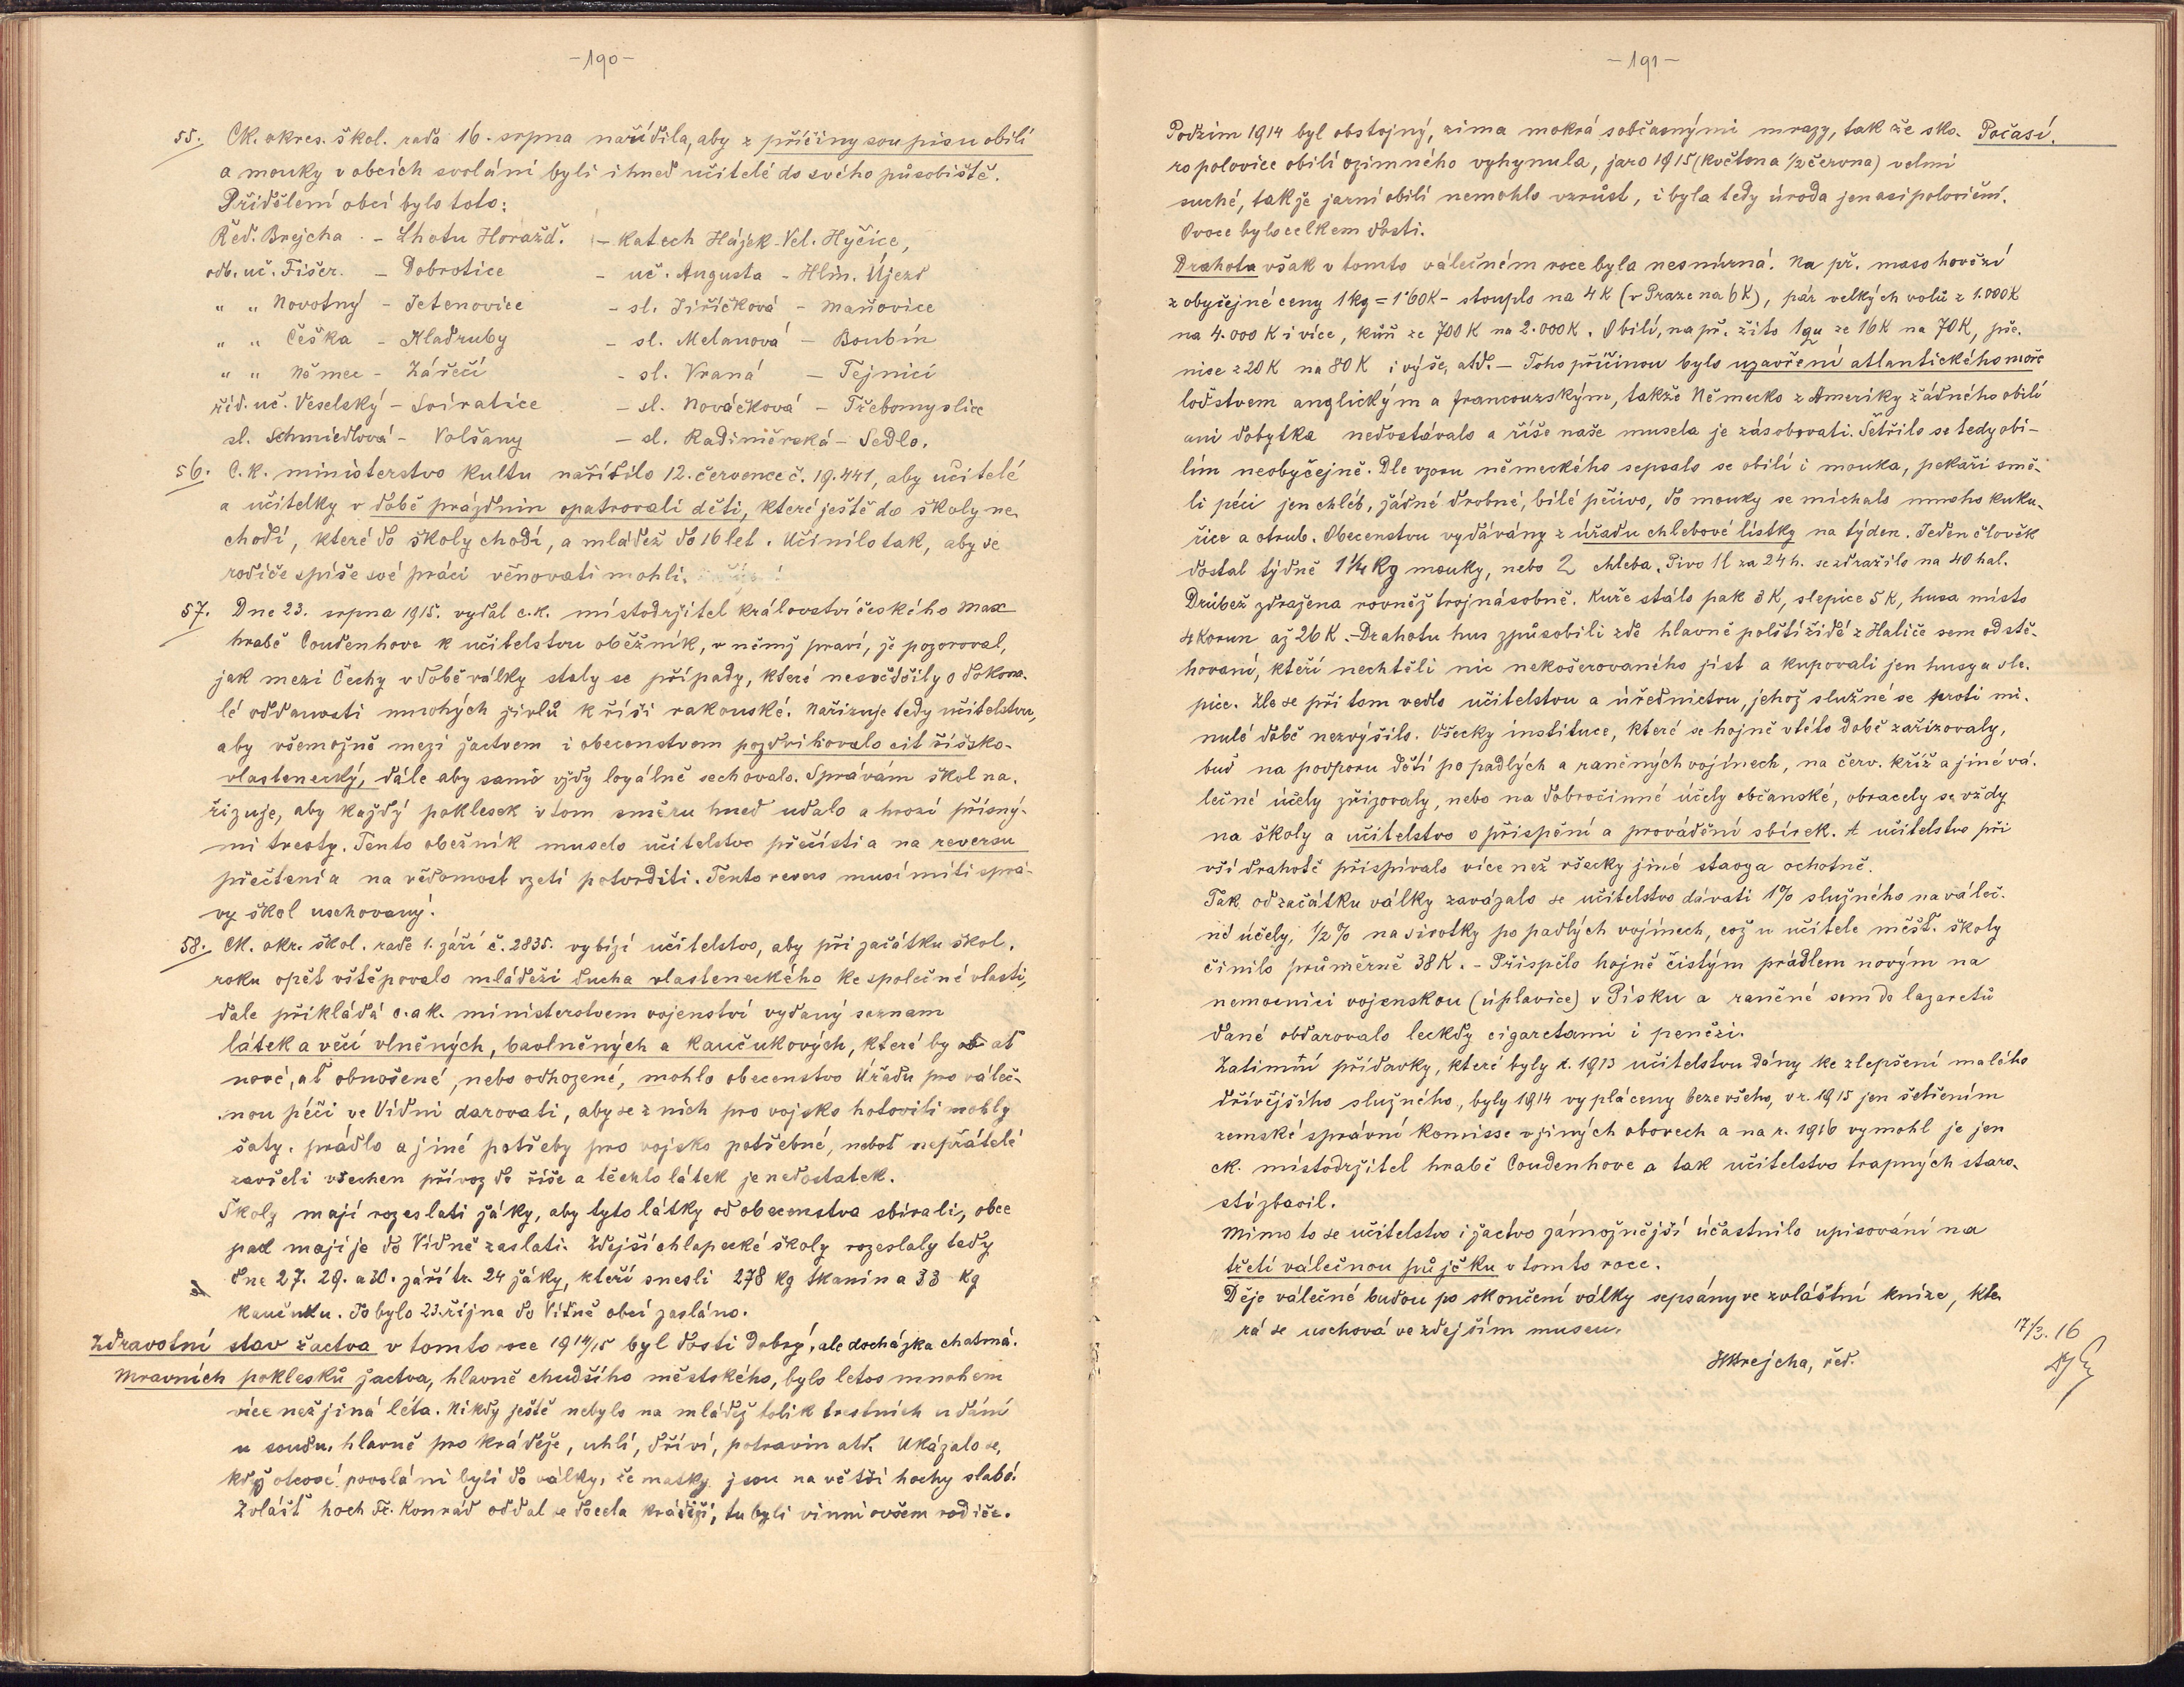 -190-
55. CK. okres. škol. rada 16. srpna nařídila, aby z příčiny soupisu obilí
a mouky v obcích svoláni byli ihned učitelé do svého působiště.
Přidělení obcí bylo toto:
Řed. Brejcha - Lhotu Horažď. - Katech Hájek - Vel. Hyčice,
odb. uč. Fišer. - Dobrotice - uč. Augusta - Hlin. Újezd
" " Novotný - Jetenovice - sl. Jiříčková - Maňovice
" " Češka - Kladruby - sl. Melanová - Boubín
" " Němec - Zářečí - sl. Vraná - Tejnici
říd. uč. Veselský - Svíratice - sl. Nováčková - Třebomyslice
sl. Schmiedlová - Volšany - sl. Radiměrská - Sedlo.
56. C.k. ministerstvo kultu nařídilo 12. července č. 19.441, aby učitelé
a učitelky v době prázdnin opatrovali děti, které ještě do školy ne-
chodí, které do školy chodí, a mládež do 16 let. Učinilo tak, aby se
rodiče spíše své práci věnovati mohli.
57. Dne 23. srpna 1915. vydal c.k. místodržitel království českého Max
hrabě Coudenhove k učitelstvu oběžník, v němž praví, že pozoroval,
jak mezi Čechy v době války staly se případy, které nesvědčily o dokona-
lé oddanosti mnohých živlů k říši rakouské. Nařizuje tedy učitelstvu,
aby všemožně mezi žactvem i obecenstvem pozdvihovalo cit říšsko-
vlastenecký, dále aby samo vždy loyálně se chovalo. Správám škol na-
řizuje, aby každý poklesek v tom směru hned udalo a hrozí přísný-
mi tresty. Tento oběžník muselo učitelstvo přečísti a na reversu
přečtení a na vědomost vzetí potvrditi. Tento revers musí míti sprá-
vy škol uschovaný.
58. CK. okr. škol. rade 1. září č. 2835. vybízí učitelstvo, aby při začátku škol.
roku opět vštěpovalo mládeži ducha vlasteneckého ke společné vlasti,
dále přikládá c. a k. ministerstvem vojenství vydaný seznam
látek a věcí vlněných, bavlněných a kaučukových, které by ať
nové, ať obnošené, nebo odhozené, mohlo obecenstvo Úřadu pro váleč-
nou péči ve Vídni darovati, aby se z nich pro vojsko hotoviti mohly
šaty, prádlo a jiné potřeby pro vojsko potřebné, neboť nepřátelé
zavřeli všechen přívoz do říše a těchto látek je nedostatek.
Školy mají rozeslati žáky, aby tyto látky od obecenstva sbírali, obce
pak mají je do Vídně zaslati. Zdejší chlapecké školy rozeslaly tedy
dne 27. 29. a 30. září tr. 24 žáky, kteří snesli 278 kg tkanin a 33 kg
kaučuku. To bylo 23. října do Vídně obcí zasláno.
Zdravotní stav žactva v tomto roce 1914/15 byl dosti dobrý, ale docházka chatrná.
Mravních poklesků žactva, hlavně chudšího městského, bylo letos mnohem
více než jiná léta. Nikdy ještě nebylo na mládež tolik trestních udání
u soudu, hlavně pro krádeže, uhlí, dříví, potravin atd. Ukázalo se,
když otcové povoláni byli do války, že matky jsou na větší hochy slabé.
Zvlášť hoch Fr. Konrád oddal se docela krádeži, tu byli vinni ovšem rodiče.
-191-
Podzim 1914 byl obstojný, zima mokrá s občasnými mrazy, tak že sko- Počasí.
ro polovice obilí ozimného vyhynula, jaro 1915 (květen a 1/2 června) velmi
suché, takže jarní obilí nemohlo vzrůst, i byla tedy úroda jen asi poloviční.
Ovoce bylo celkem dosti.
Drahota však v tomto válečném roce byla nesmírná. Na př. maso hovězí
z obyčejné ceny 1 kg = 1·60 K - stouplo na 4 K (v Praze na 6 K), pár velkých volů z 1.000 K
na 4.000 K i více, kůň ze 700 K na 2.000 K. Obilí, na př. žito 1 qu ze 16 K na 70 K, pše-
nice z 20 K na 80 K i výše, atd. - Toho příčinou bylo uzavření atlantického moře
loďstvem anglickým a francouzským, takže Německo z Ameriky žádného obilí
ani dobytka nedostávalo a říše naše musela je zásobovati. Šetřilo se tedy obi-
lím neobyčejně. Dle vzoru německého sepsalo se obilí i mouka, pekaři smě-
li péci jen chléb, žádné drobné, bílé pečivo, do mouky se míchalo mnoho kuku-
řice a otrub. Obecenstvu vydávány z úřadu chlebové lístky na týden. Jeden člověk
dostal týdně 1 1/4 Kg mouky, nebo 2 chleba. Pivo 1 l za 24 h. se zdražilo na 40 hal.
Drůbež zdražena rovněž trojnásobně. Kuře stálo pak 3 K, slepice 5 K, husa místo
4 korun až 26 K. - Drahotu hus způsobili zde hlavně polští židé z Haliče sem odstě-
hovaní, kteří nechtěli nic nekošerovaného jíst a kupovali jen husy a sle-
pice. Zle se při tom vedlo učitelstvu a úřednictvu, jehož služné se proti mi-
nulé době nezvýšilo. Všecky instituce, které se hojně v této době zařizovaly,
buď na podporu dětí po padlých a raněných vojínech, na červ. kříž a jiné vá-
lečné účely zřizovaly, nebo na dobročinné účely občanské, obracely se vždy
na školy a učitelstvo o přispění a provádění sbírek. A učitelstvo při
vší drahotě přispívalo více než všecky jiné stavy a ochotně.
Tak od začátku války zavázalo se učitelstvo dávati 1% služného na váleč-
né účely, 1/2% na sirotky po padlých vojínech, což u učitele měšť. školy
činilo průměrně 38 K. - Přispělo hojně čistým prádlem novým na
nemocnici vojenskou (úplavice) v Písku a raněné sem do lazaretů
dané obdarovalo leckdy cigaretami i penězi.
Zatimní přídavky, které byly r. 1913 učitelstvu dány ke zlepšení malého
dřívějšího služného, byly 1914 vypláceny beze všeho, v r. 1915 jen šetřením
zemské správní komisse v jiných oborech a na r. 1916 vymohl je jen
ck. místodržitel hrabě Coudenhove a tak učitelstvo trapných staro-
stí zbavil.
Mimo to se učitelstvo i žactvo zámožnější účastnilo upisování na
třetí válečnou půjčku v tomto roce.
Děje válečné budou po skončení války sepsány ve zvláštní knize, kte-
rá se uschová ve zdejším museu.
17/3. 16
HBrejcha, řed.